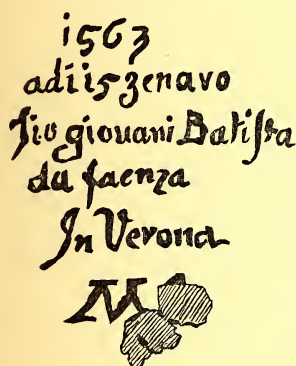 1563
adi 15 zenavo
Gio giouani Batista
da faenza
In Verona
M